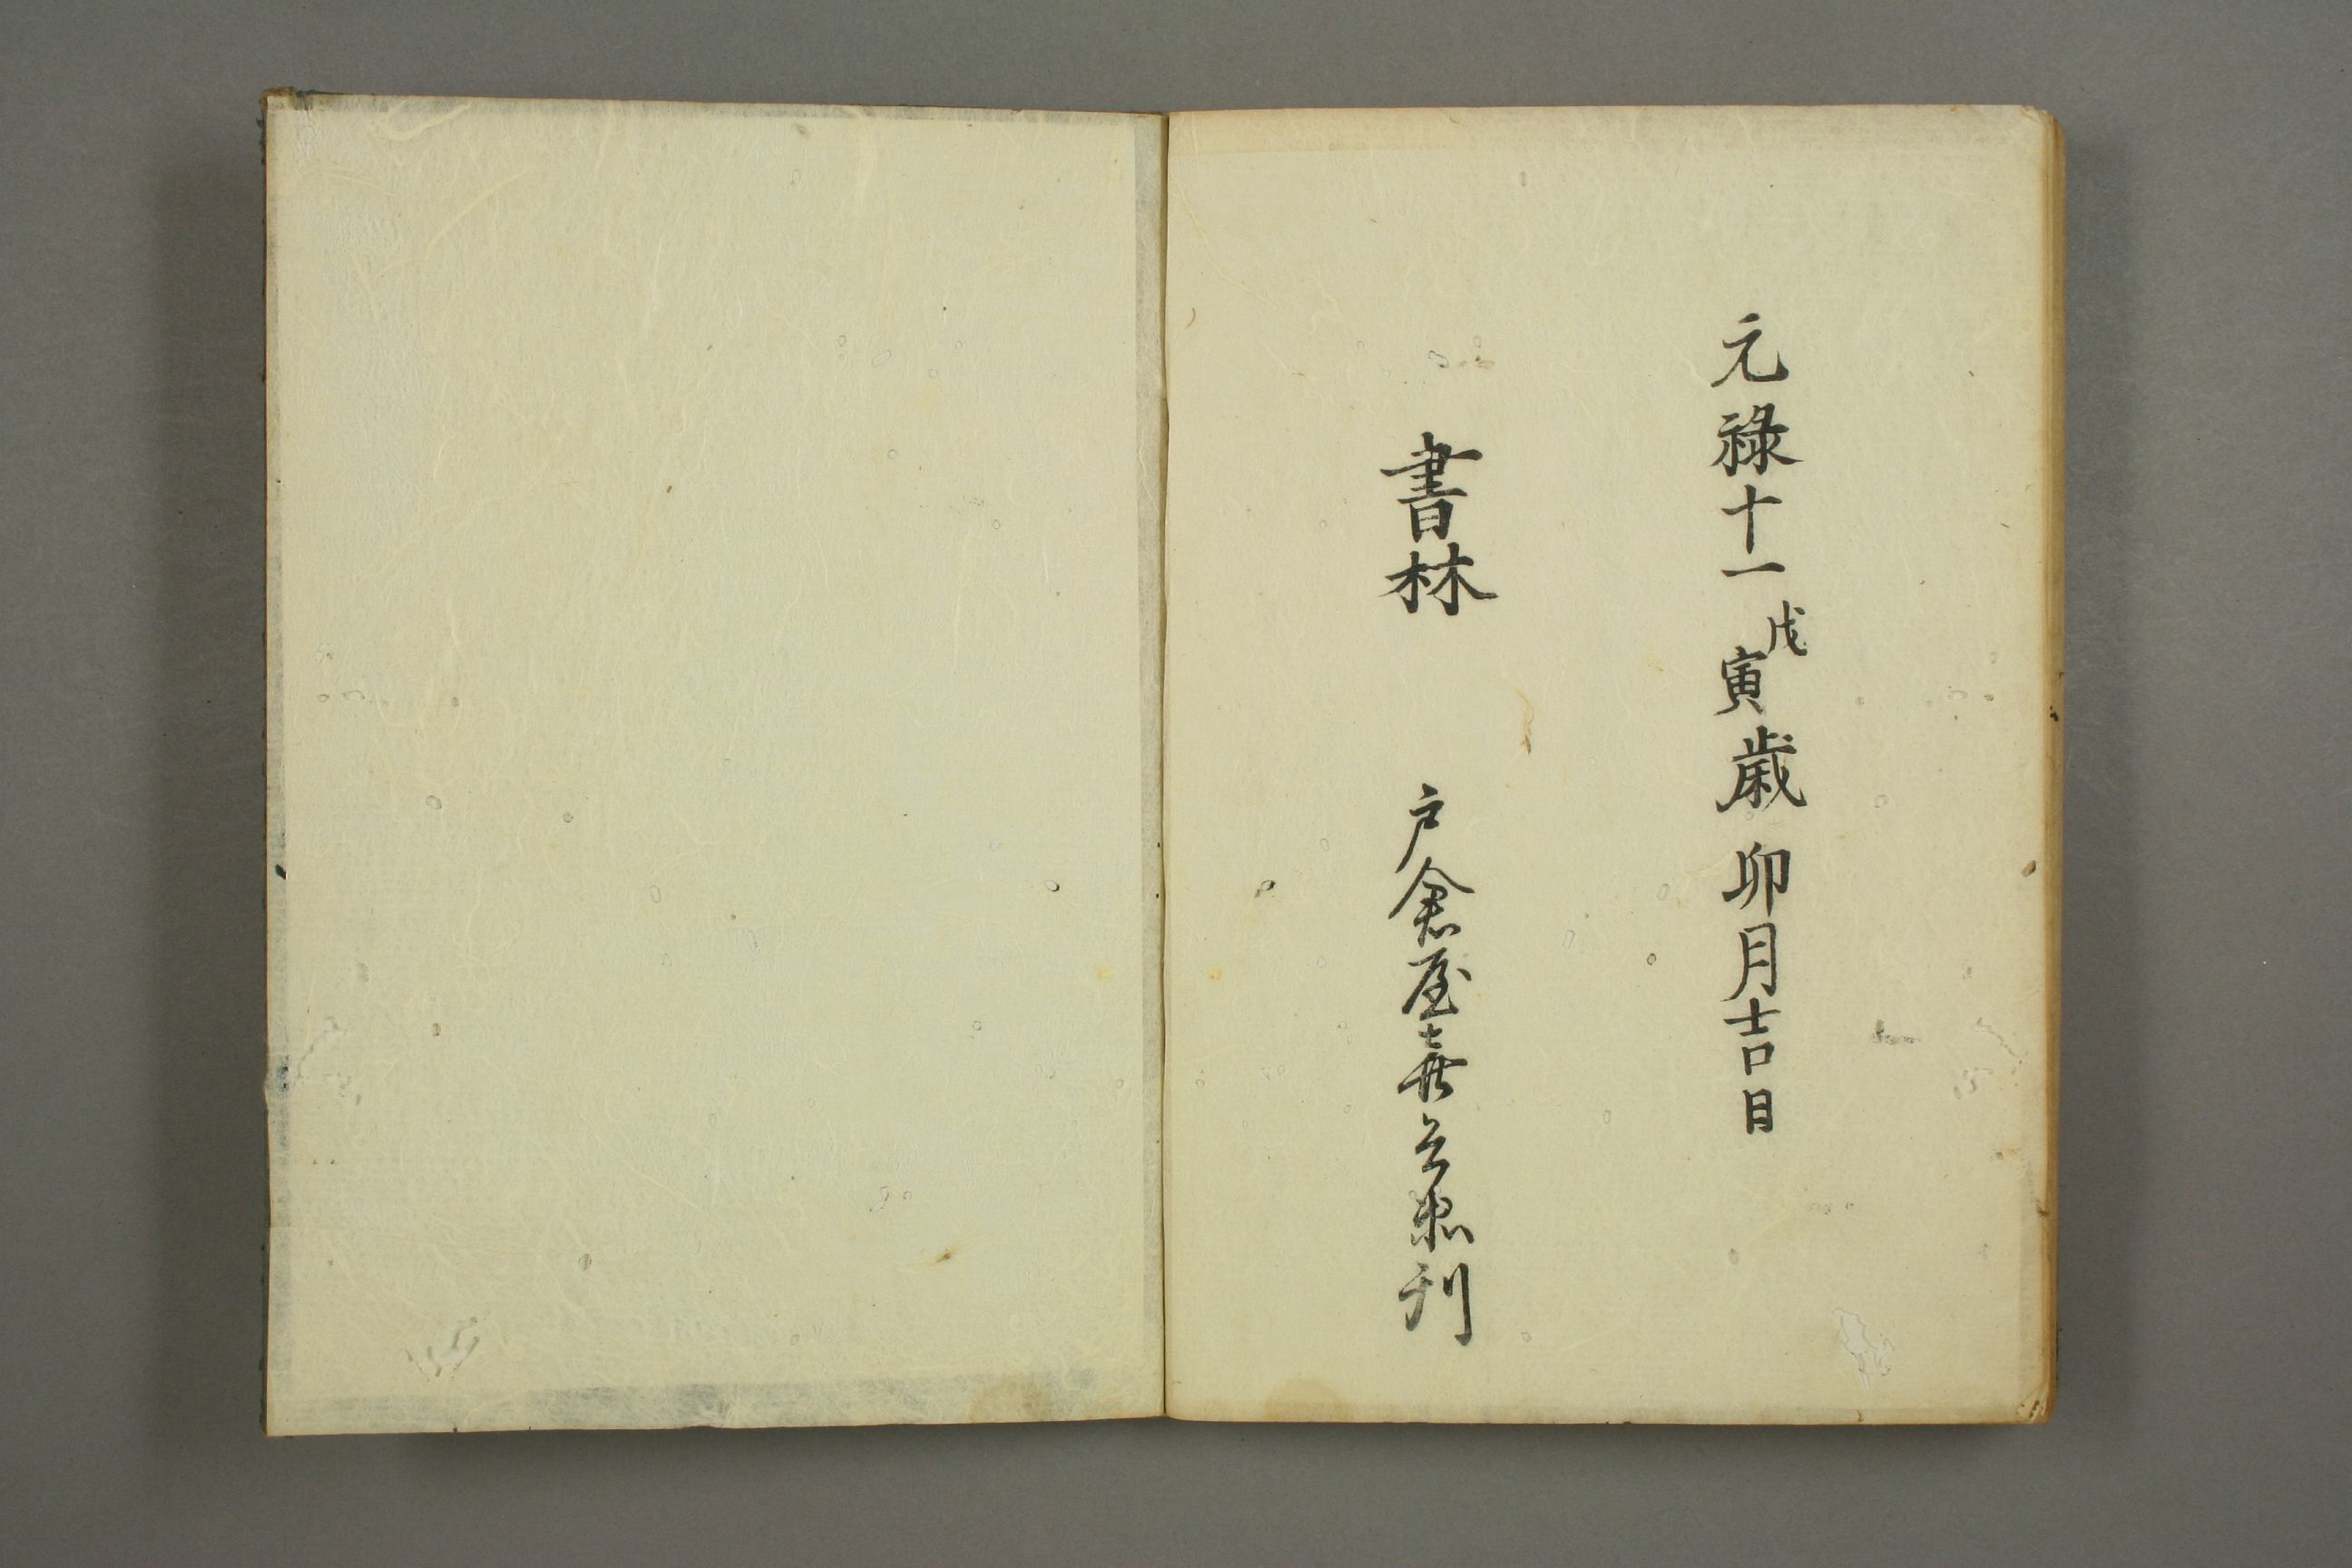 元禄十一戊寅歳卯月吉日
書林 戸倉屋喜兵衛刊